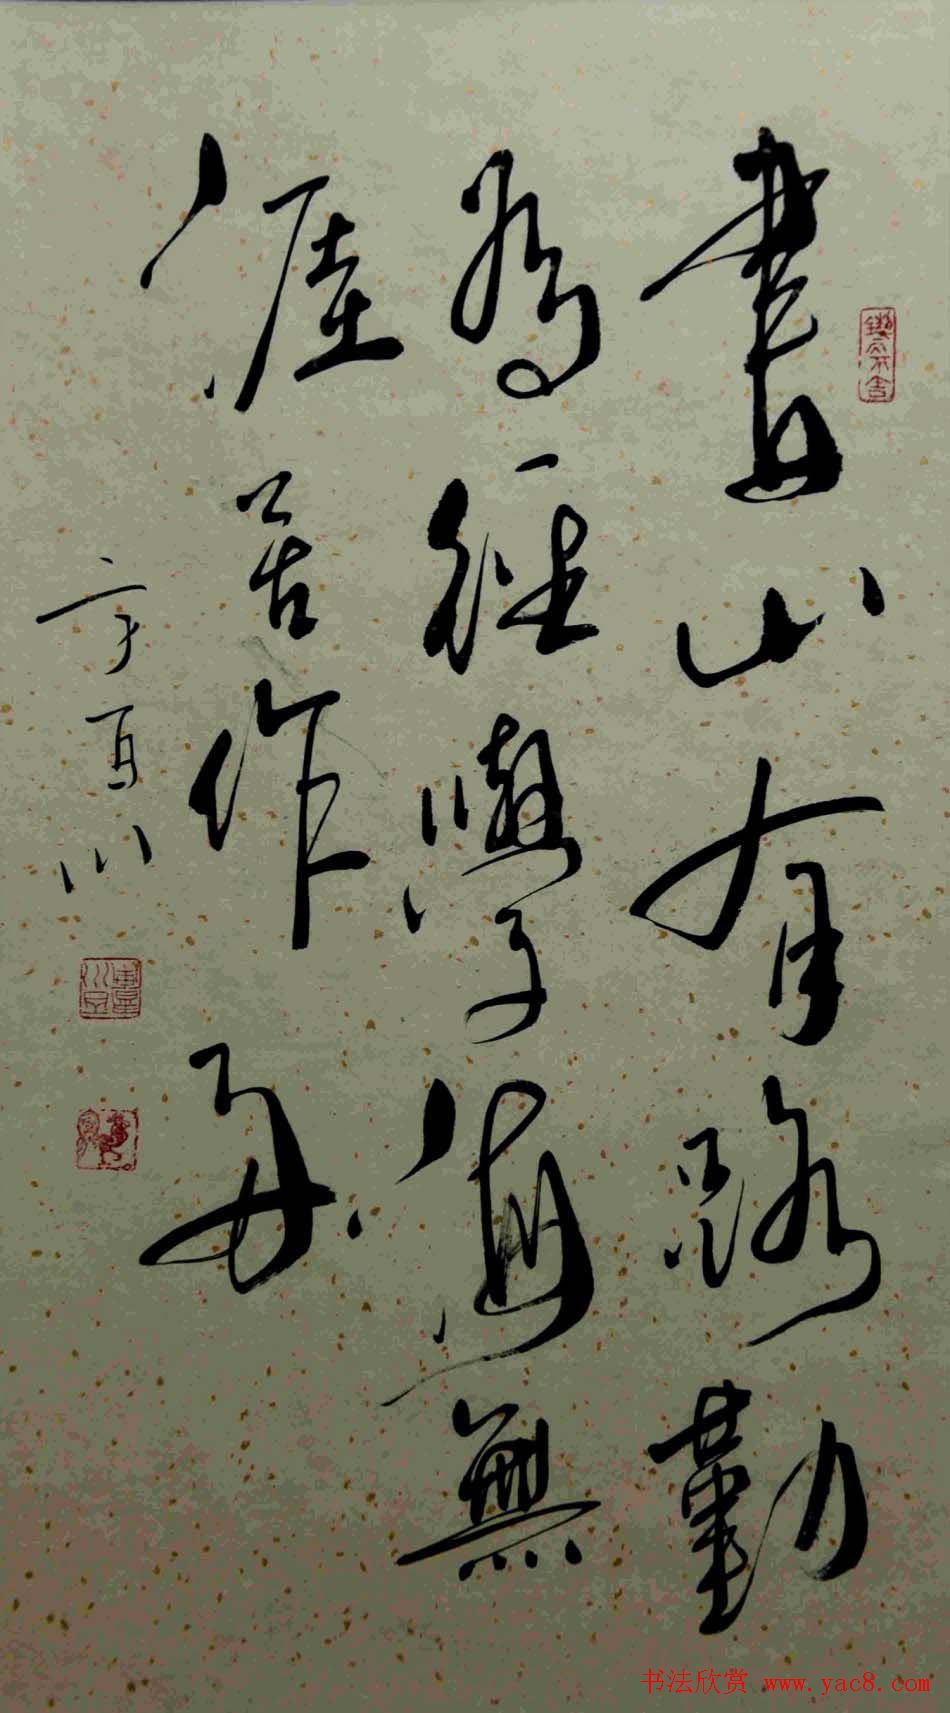 書山有路勤
為徑學海無
涯苦作舟
鍥而不舍
书法欣赏 www.yac8.com